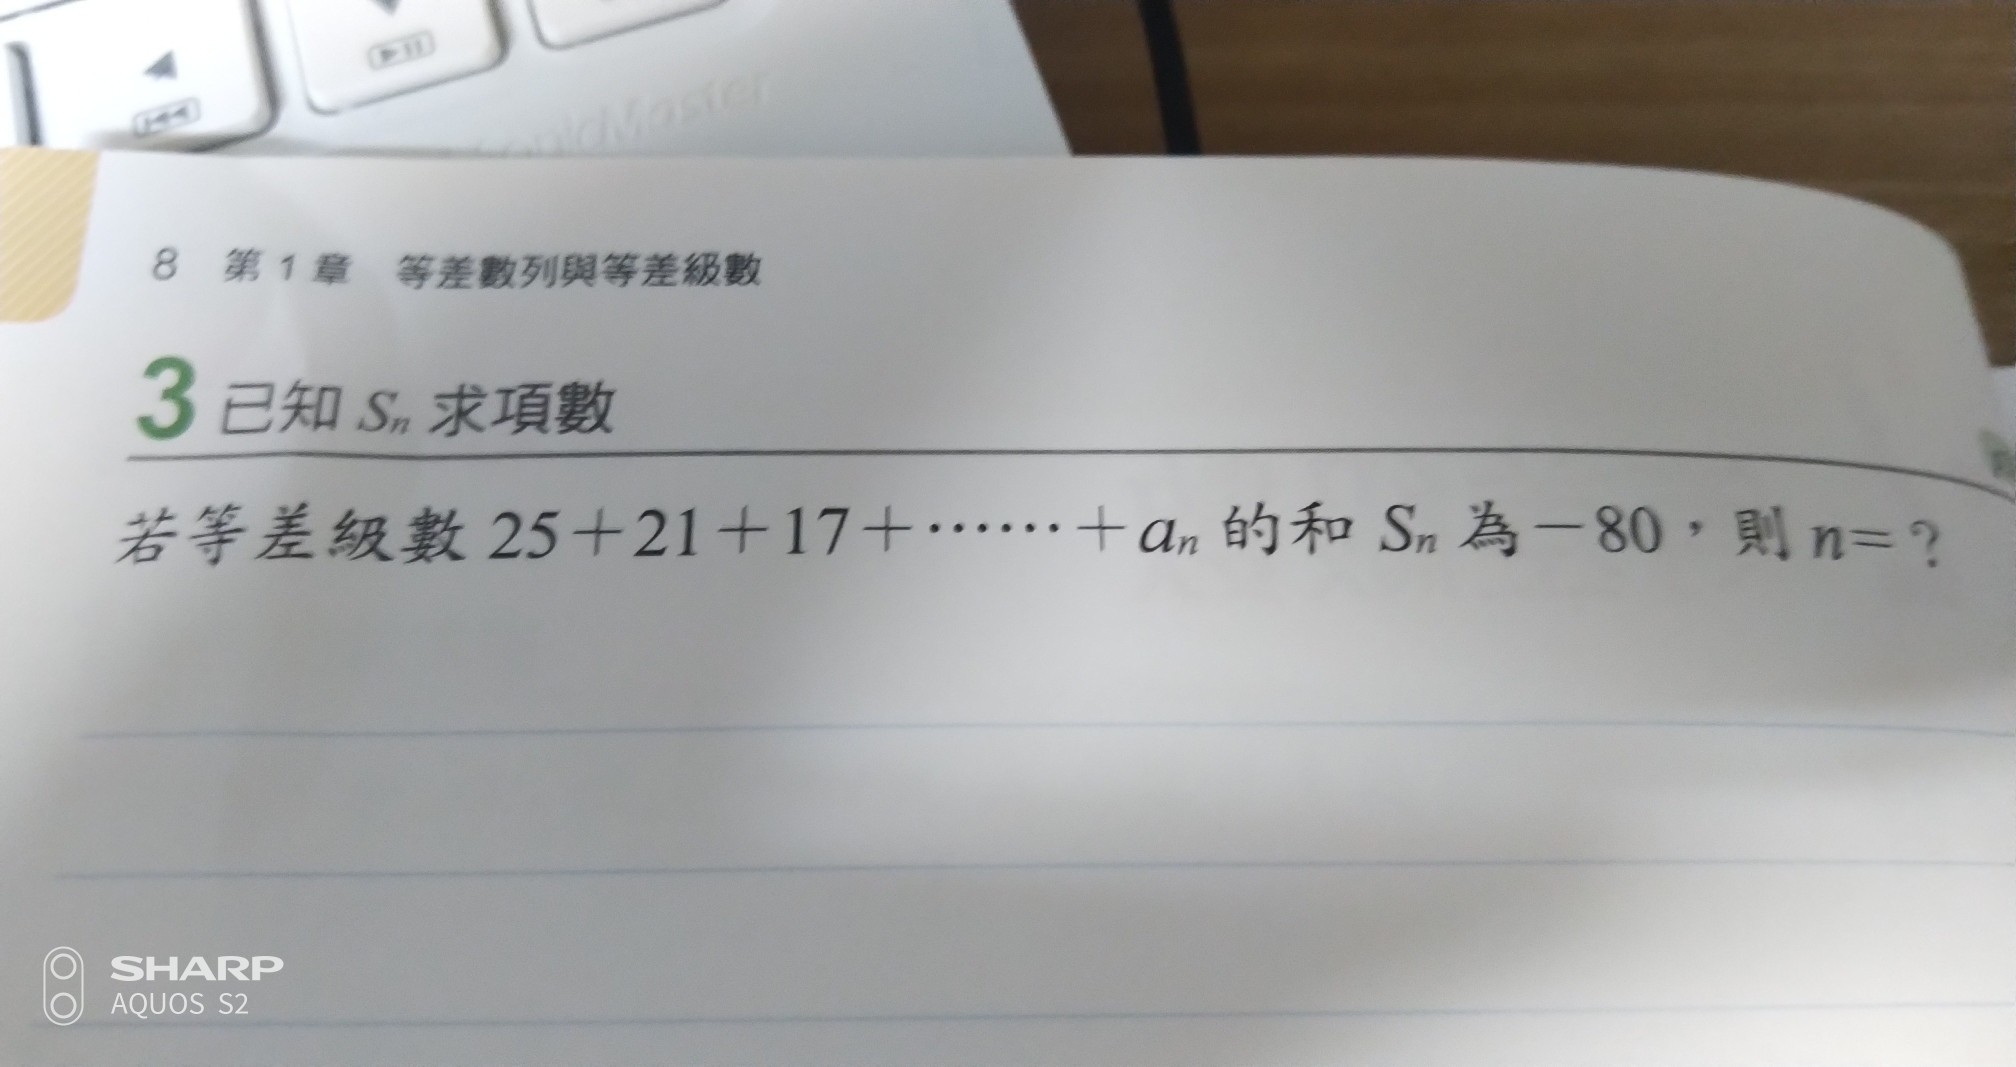 8 第 1 章 等差數列與等差級數
3 已知 Sₙ 求項數
若等差級數 25＋21＋17＋……＋aₙ 的和 Sₙ 為－80，則 n=？
SHARP
AQUOS S2